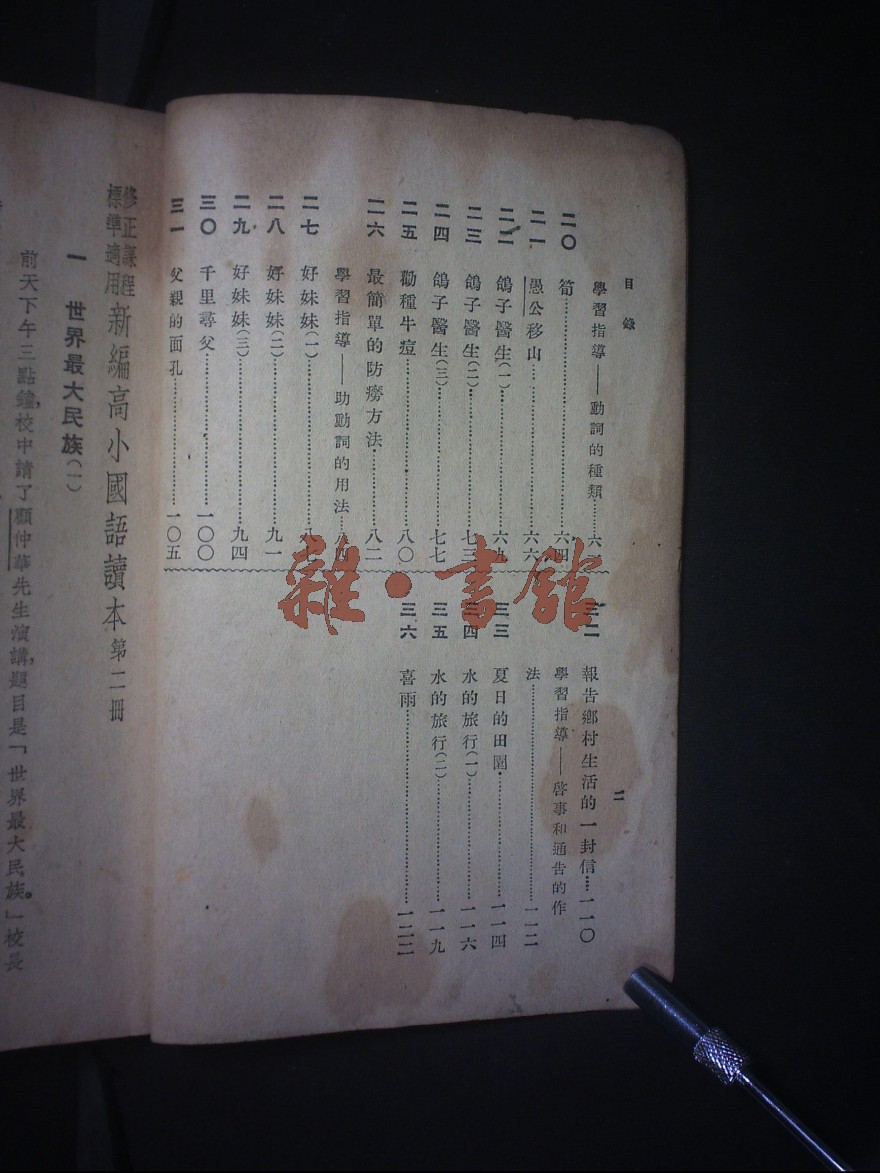 目錄
學習指導——動詞的種類……六
二〇 筍……六四
二一 愚公移山……六六
二二 鴿子醫生(一)……六九
二三 鴿子醫生(二)……七三
二四 鴿子醫生(三)……七七
二五 勸種牛痘……八〇
二六 最簡單的防癆方法……八二
學習指導——助動詞的用法……八四
二七 好妹妹(一)……八
二八 好妹妹(二)……九一
二九 好妹妹(三)……九四
三〇 千里尋父……一〇〇
三一 父親的面孔……一〇五
三二 報告鄉村生活的一封信……一一〇
學習指導——啓事和通告的作
法……一一二
三三 夏日的田園……一一四
三四 水的旅行(一)……一一六
三五 水的旅行(二)……一一九
三六 喜雨……一二二
二
雜·書館
修正課程
標準適用
新編高小國語讀本第二冊
一 世界最大民族(一)
前天下午三點鐘,校中請了顧仲華先生演講,題目是「世界最大民族。」校長